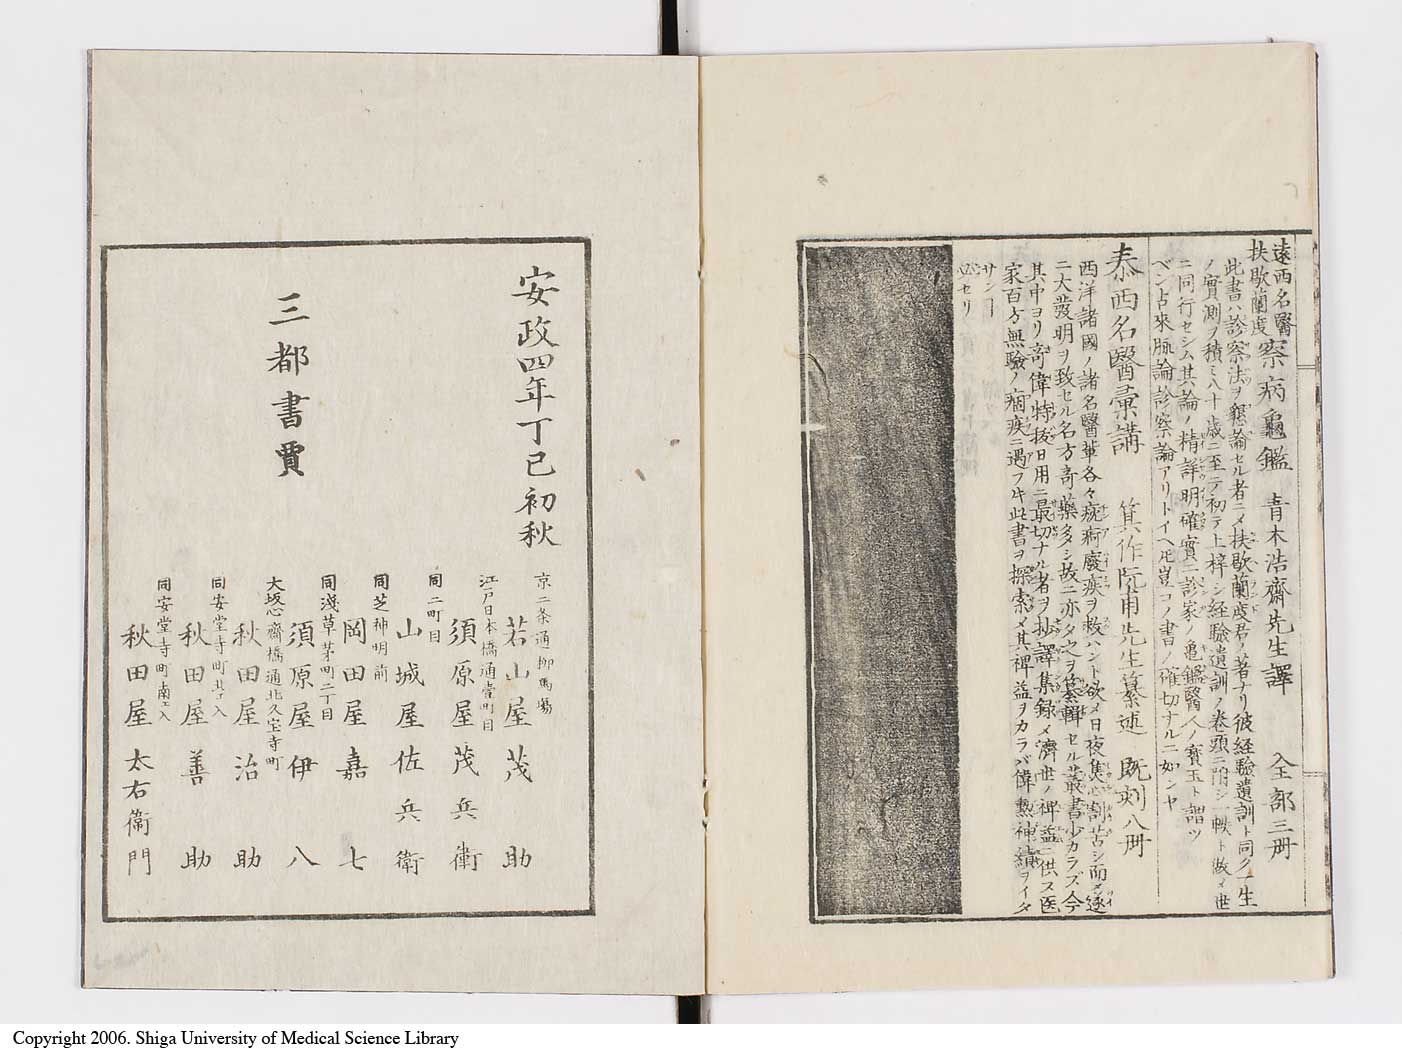 遠西名醫
扶歇蘭度 察病龜鑑 青木浩齋先生譯 全部三冊
此書ハ診察法ヲ懇論セル者ニメ扶歇蘭度君ノ著ナリ彼経験遺訓ト同ク一生
ノ實測ヲ積ミ八十歳ニ至テ初テ上梓シ経験遺訓ノ巻頭ニ附シ一帙ト做メ世
ニ同行セシム其論ノ精詳明確實ニ診家ノ亀鑑醫人ノ寳玉ト謂ツ
ベシ古來脈論診察論アリトイヘ𪜈豈コノ書ノ確切ナルニ如ンヤ
泰西名醫彙講 箕作阮甫先生纂述 既刻八冊
西洋諸國ノ諸名醫輩各々痼痾廢疾ヲ救ハント欲メ日夜焦心割苦シ而メ逐
二大發明ヲ致セル名方奇藥多シ故ニ亦タ之ヲ纂輯セル叢書少カラズ今
其中ヨリ奇偉特抜日用ニ最切ナル者ヲ抄譯集録メ濟世ノ裨益ニ供ス医
家百方無驗ノ痼疾ニ遇フキ此書ヲ探索メ其裨益ヲカラバ偉勲神績ヲイタ
サンヿ
必セリ
安政四年丁巳初秋
三都書賈
京二条通柳馬場
若山屋茂助
江戸日本橋通壹町目
須原屋茂兵衛
同二町目
山城屋佐兵衛
同芝神明前
岡田屋嘉七
同淺草茅町二丁目
須原屋伊八
大坂心齋橋通北久宝寺町
秋田屋治助
同安堂寺町北エ入
秋田屋善助
同安堂寺町南エ入
秋田屋太右衛門
Copyright 2006. Shiga University of Medical Science Library